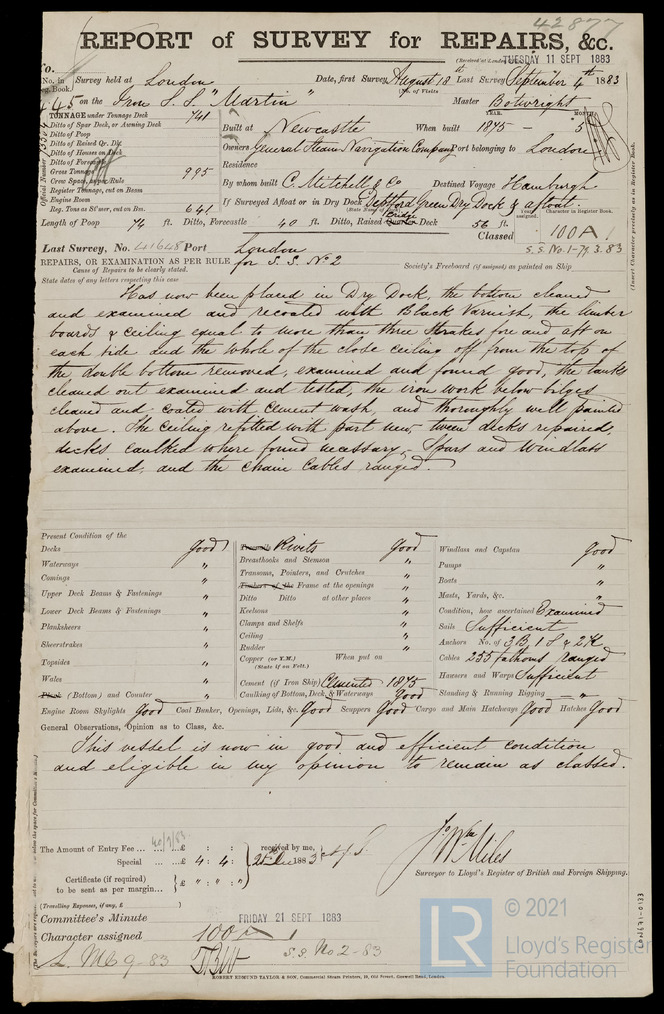 42877
REPORT of SURVEY for REPAIRS, &c.
(Received at London TUESDAY 11 SEPT 1883
No. in Survey held at London Date, first Survey August 18th Last Survey September 4th 1883
Reg. Book.) (No. of Visits
445 on the Iron S.S. "Martin" Master Bolwright
TONNAGE under Tonnage Deck 741
Ditto of Spar Deck, or Awning Deck
Ditto of Poop
Ditto of Raised Qr. Dk.
Ditto of Houses on Deck
Ditto of Forecastle
Gross Tonnage 995
Crew Space, as per Rule
Register Tonnage, cut on Beam
Engine Room
Reg. Tons as St'mer, cut on Bea. 641
Official Number
YEAR. MONTH.
Built at Newcastle When built 1875 - 5
Owners General Steam Navigation Company Port belonging to London
Residence
By whom built C. Mitchell & Co Destined Voyage Hamburgh
If Surveyed Afloat or in Dry Dock Deptford Green Dry Dock & afloat.
(State Name of Dock.)
Length of Poop 74 ft. Ditto, Forecastle 40 ft. Ditto, Raised Quarter Bridge Deck 56 ft.
Character in Register Book.
Classed 100A1
S.S. No. 1-79 3.83
(Insert Character precisely as in Register Book.
Last Survey, No. 41648 Port London
REPAIRS, OR EXAMINATION AS PER RULE, for S.S. No 2
Cause of Repairs to be clearly stated. Society's Freeboard (if assigned) as painted on Ship
State dates of any letters respecting this case
Has now been placed in Dry Dock, the bottom cleaned
and examined and recoated with Black Varnish, the limber
boards & ceiling equal to more than three strakes fore and aft on
each side and the whole of the close ceiling off from the top of
the double bottom removed, examined and found good, the tanks
cleaned out examined and tested, the iron work below bilges
cleaned and coated with cement wash, and thoroughly well painted
above. The ceiling refitted with part new, tween decks repaired,
decks caulked where found necessary, - Spars and Windlass
examined, and the chain cables ranged.
Present Condition of the
Decks good
Waterways "
Comings "
Upper Deck Beams & Fastenings "
Lower Deck Beams & Fastenings "
Planksheers "
Sheerstrakes "
Topsides "
Wales "
Plank (Bottom) and Counter "
Treenails Rivets good
Breasthooks and Stemson "
Transoms, Pointers, and Crutches "
Timbers of the Frame at the openings "
Ditto Ditto at other places "
Keelsons "
Clamps and Shelfs "
Ceiling "
Rudder "
Copper (or Y.M.) When put on
(State if on Felt.)
Cement (if Iron Ship) Cemented 1875
Caulking of Bottom, Deck, & Waterways Good
Windlass and Capstan good
Pumps "
Boats "
Masts, Yards, &c. "
Condition, how ascertained Examined
Sails Sufficient
Anchors No. of 3B, 1S & 2K
Cables 255 fathoms Ranged
Hawsers and Warps Sufficient
Standing & Running Rigging "
Engine Room Skylights Good Coal Bunker, Openings, Lids, &c. Good Scuppers Good Cargo and Main Hatchways Good Hatches Good
General Observations, Opinion as to Class, &c.
This vessel is now in good and efficient condition
and eligible in my opinion to remain as classed.
The Amount of Entry Fee ... £ : :
Special ... £ 4 : 4 :
received by me,
1883
Certificate (if required)
to be sent as per margin... £ " : " : "
(Travelling Expenses, if any, £ )
Jno Wm Miles
Surveyor to Lloyd's Register of British and Foreign Shipping.
Committee's Minute FRIDAY 21 SEPT 1883
Character assigned 100 A 1
L.MC 9-83 S.S. No 2-83
ROBERT EDMUND TAYLOR & SON, Commercial Steam Printers, 19, Old Street, Goswell Road, London.
LR
© 2021
Lloyd's Register
Foundation
LON671-0133